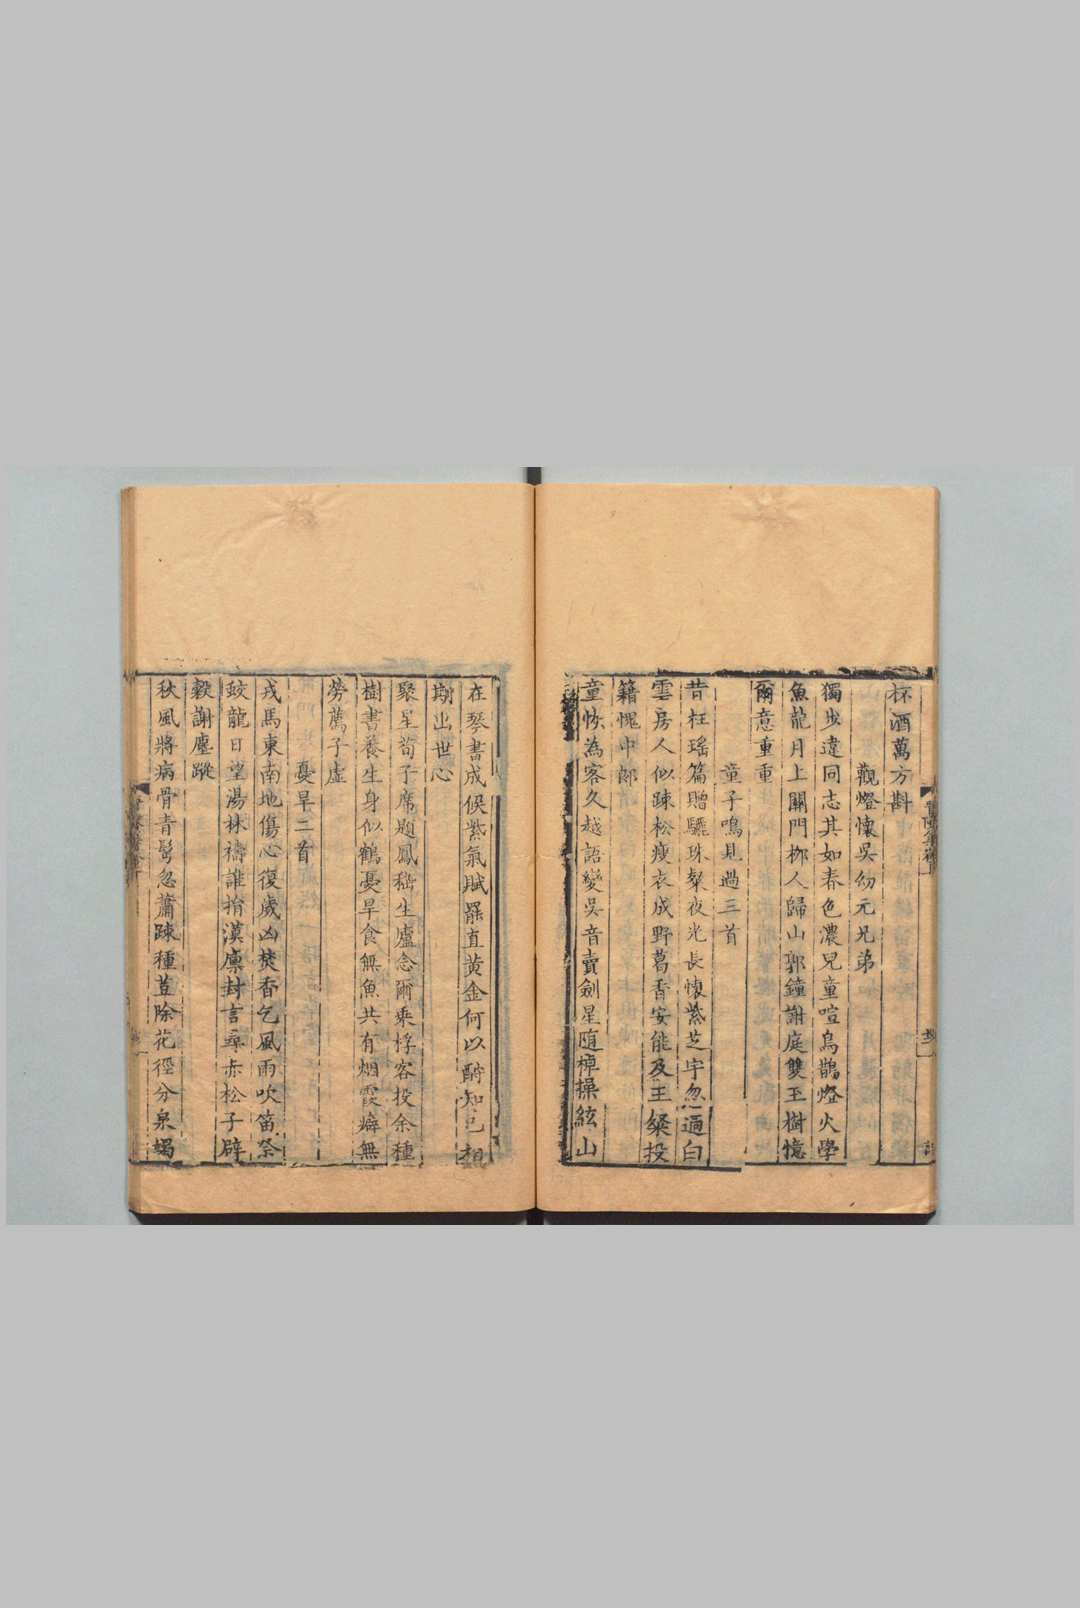 杯酒萬方斟
觀燈懷吳幼元兄弟
獨步違同志其如春色濃兒童喧烏鵲燈火學
魚龍月上關門栁人歸山郭鐘謝庭雙玉樹憶
爾意重重
童子鳴見過三首
昔枉瑤篇贈驪珠粲夜光長懷紫芝宇忽過白
雲房人似踈松瘦衣成野葛香安能及王粲投
籍愧中郎
童恢為客久越語變吳音賣劍星隨棹操絃山
在琴書成候紫氣賦罷直黃金何以酧知己相
期出世心
聚星荀子席題鳳嵇生廬念爾乘桴客投余種
樹書養生身似鶴憂旱食無魚共有烟霞癖無
勞薦子虛
憂旱二首
戎馬東南地傷心復歲凶焚香乞風雨吹笛祭
蛟龍日望湯林禱誰掊漢廪封言尋赤松子辟
穀謝塵蹤
秋風將病骨青髩忽蕭踈種荳除花徑分泉